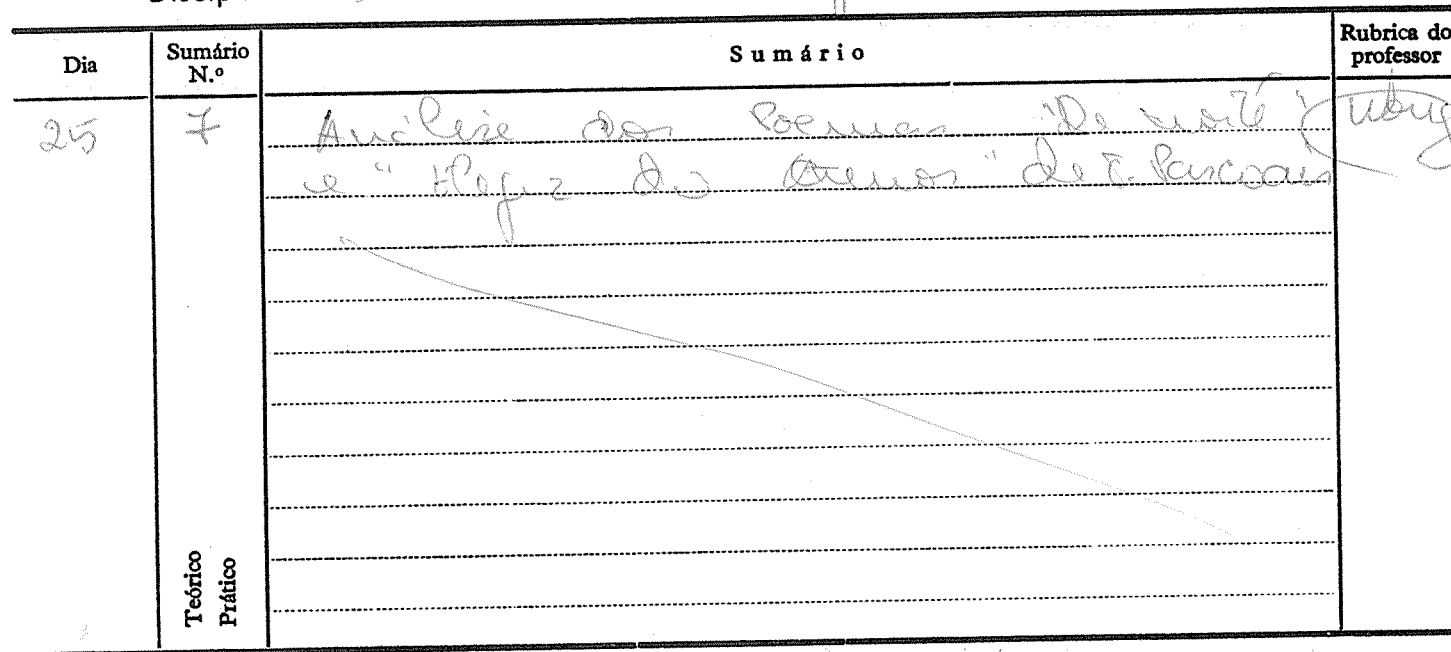 Dia
Sumário N.º
Sumário
Rubrica do professor
25
7
Análise dos Poemas "De noite"
e " do " de T. Pascoais
Teórico
Prático